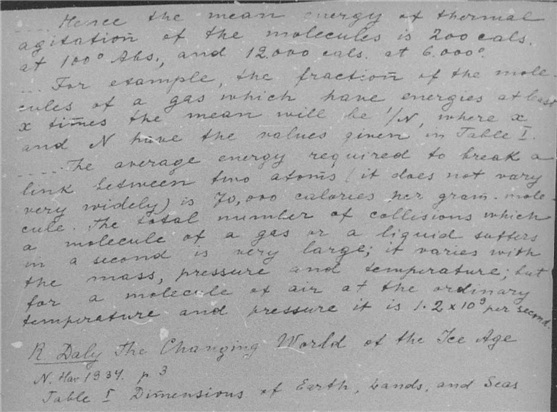 Hence the mean energy of thermal
agitation of the molecules is 200 cals.
at 100° Abs., and 12,000 cals. at 6,000°.
... For example, the fraction of the mole
cules of a gas which have energies at least
x times the mean will be 1/N, where x
and N have the values given in Table I.
..... The average energy required to break a
link between two atoms (it does not vary
very widely) is 70,000 calories per gram-mole-
cule. The total number of collisions which
a molecule of a gas or a liquid suffers
in a second is very large; it varies with
the mass, pressure and temperature; but
for a molecule of air at the ordinary
temperature and pressure it is 1.2x10⁹ per second
R. Daly The Changing World of the Ice Age
N. Hav 1934. p 3
Table I Dimensions of Earth, Lands, and Seas